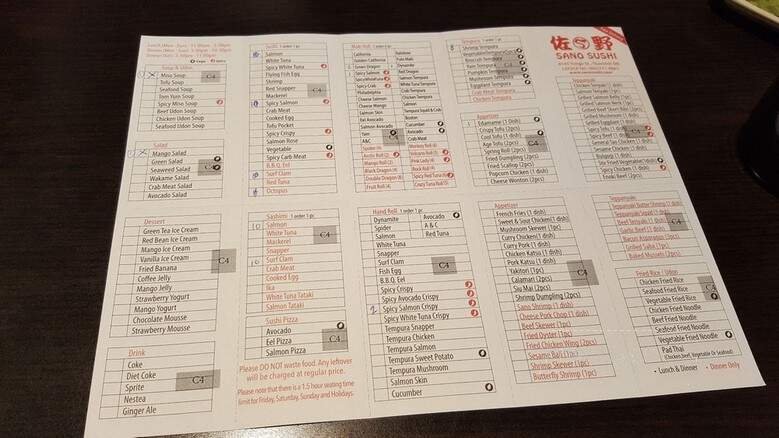 佐野
SANO SUSHI
Soup & Udon
Miso Soup
Tofu Soup
Seafood Soup
Tom Yum Soup
Spicy Miso Soup
Beef Udon Soup
Chicken Udon Soup
Seafood Udon Soup
C4
Salad
Mango Salad
Green Salad
Seaweed Salad
Wakame Salad
Crab Meat Salad
Avocado Salad
C4
Dessert
Green Tea Ice Cream
Red Bean Ice Cream
Mango Ice Cream
Vanilla Ice Cream
Fried Banana
Coffee Jelly
Mango Jelly
Strawberry Yogurt
Mango Yogurt
Chocolate Mousse
Strawberry Mousse
C4
Drink
Coke
Diet Coke
Sprite
Nestea
Ginger Ale
C4
Sushi 1 order 1 pc
Salmon
White Tuna
Spicy White Tuna
Flying Fish Egg
Shrimp
Red Snapper
Mackerel
Spicy Salmon
Crab Meat
Cooked Egg
Tofu Pocket
Spicy Crispy
Salmon Rose
Vegetable
Spicy Carb Meat
B.B.Q. Eel
Surf Clam
Red Tuna
Octopus
C4
Sashimi 1 order 1 pc
10 Salmon
White Tuna
Mackerel
Snapper
10 Surf Clam
Crab Meat
Cooked Egg
Ika
White Tuna Tataki
Salmon Tataki
C4
Sushi Pizza
Avocado
Eel Pizza
Salmon Pizza
C4
Please DO NOT waste food. Any leftover
will be charged at regular price.
Please note that there is a 1.5 hour wating time
limit for Friday, Saturday, Sunday and Holidays.
Maki Roll
California
Golden California
Green Dragon
Spicy Salmon
Spicy Crab
Philadelphia
Cheese Salmon
Cheese Mango
Salmon Skin
Eel Avocado
Salmon Avocado
Yam
A&C
Rainbow
Polo Maki
Dynamite
Red Dragon
Salmon Tempura
Boston
Salmon
Tempura Squid & Crab
Cucumber
Avocado
Crab Meat
Hand Roll 1 order 1 pc
Dynamite
Avocado
Spider
A & C
Salmon
Red Tuna
White Tuna
Snapper
Surf Clam
Fish Egg
B.B.Q. Eel
Spicy Crispy
Spicy Avocado Crispy
2 Spicy Salmon Crispy
Spicy White Tuna Crispy
Tempura Snapper
Tempura Chicken
Tempura Salmon
Tempura Sweet Potato
Tempura Mushroom
Salmon Skin
Cucumber
C4
Tempura
8 Shrimp Tempura
Broccoli Tempura
Yam Tempura
Pumpkin Tempura
Mushroom Tempura
Eggplant Tempura
Crab Meat Tempura
Chicken Tempura
C4
Appetizer
Edamame (1 dish)
Crispy Tofu (2pcs)
Cool Tofu (1 dish)
Age Tofu (2pcs)
Spring Roll (2pcs)
Fried Dumpling (2pcs)
Fried Scallop (2pcs)
Popcorn Chicken (1 dish)
Cheese Wonton (2pcs)
C4
Appetizer
French Fries (1 dish)
Sweet & Sour Chicken (1 dish)
Mushroom Skewer (1pc)
Curry Chicken (1 dish)
Curry Pork (1 dish)
Chicken Katsu (1 dish)
Pork Katsu (1 dish)
Yakitori (1pc)
Calamari (2pcs)
Siu Mai (2pcs)
Shrimp Dumpling (2pcs)
Sano Shrimp (1 dish)
Cheese Pork Chop (1 dish)
Beef Skewer (1pc)
Fried Oyster (1pc)
Fried Chicken Wing (2pcs)
Sesame Ball (1pc)
Shrimp Skewer (1pc)
Butterfly Shrimp (1pc)
C4
Teppanyaki
Chicken Teriyaki (1 dish)
General Tao Chicken (1 dish)
Sesame Chicken (1 dish)
Bulgogi (1 dish)
Stir Fried Vegetables (1 dish)
Spicy Chicken (1 dish)
Enoki Beef (2pcs)
C4
Teppanyaki
Teppanyaki Butter Shrimp (1 dish)
Teppanyaki Squid (1 dish)
Beef Teriyaki (1 dish)
Garlic Beef (1 dish)
Bacon Asparagus (2pcs)
Grilled Saba (1pc)
Baked Mussels (2pcs)
C4
Fried Rice / Udon
Chicken Fried Rice
Seafood Fried Rice
Vegetable Fried Rice
Chicken Fried Noodle
Beef Fried Noodle
Seafood Fried Noodle
Vegetable Fried Noodle
Pad Thai
(Chicken, beef, Vegetable Or Seafood)
C4
• Lunch & Dinner • Dinner Only